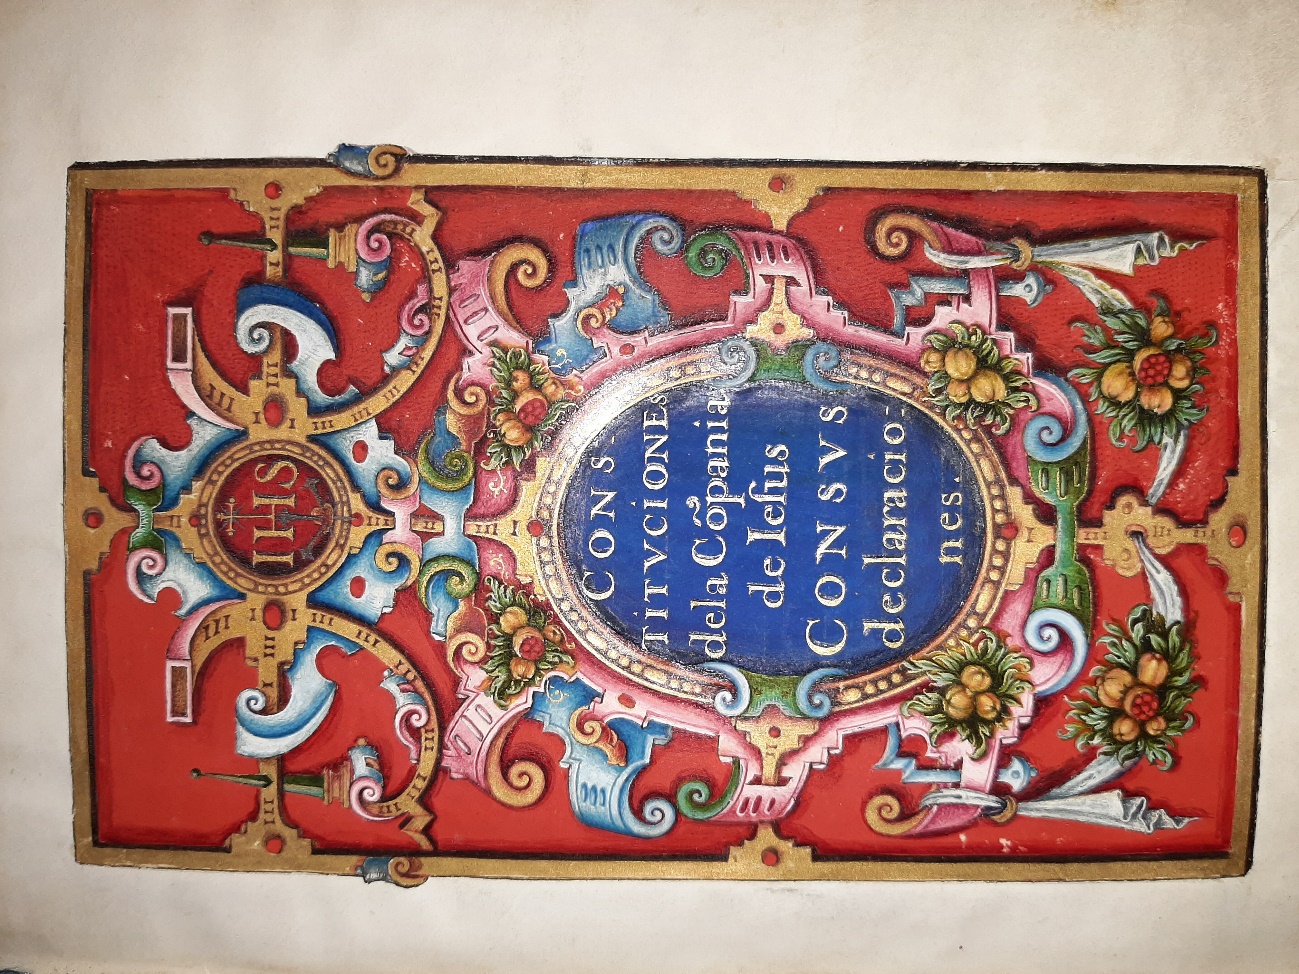 IHS
CONS-
TITVCIONES
dela Cõpania
de Iesus
CONSVS
declaracio-
nes.